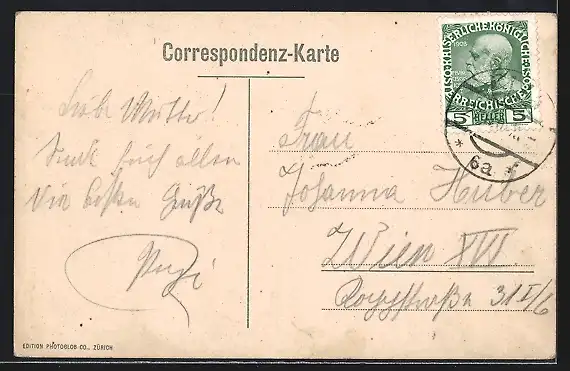 Correspondenz-Karte
KAISERLICHE KÖNIGLICHE
ÖSTERREICHISCHE
1908
5 HELLER 5
* 6a *
Liebe Mutter!
Euch allen
die besten Grüße
Frau
Johanna Huber
Wien XVI
31 I/6
EDITION PHOTOGLOB CO., ZÜRICH